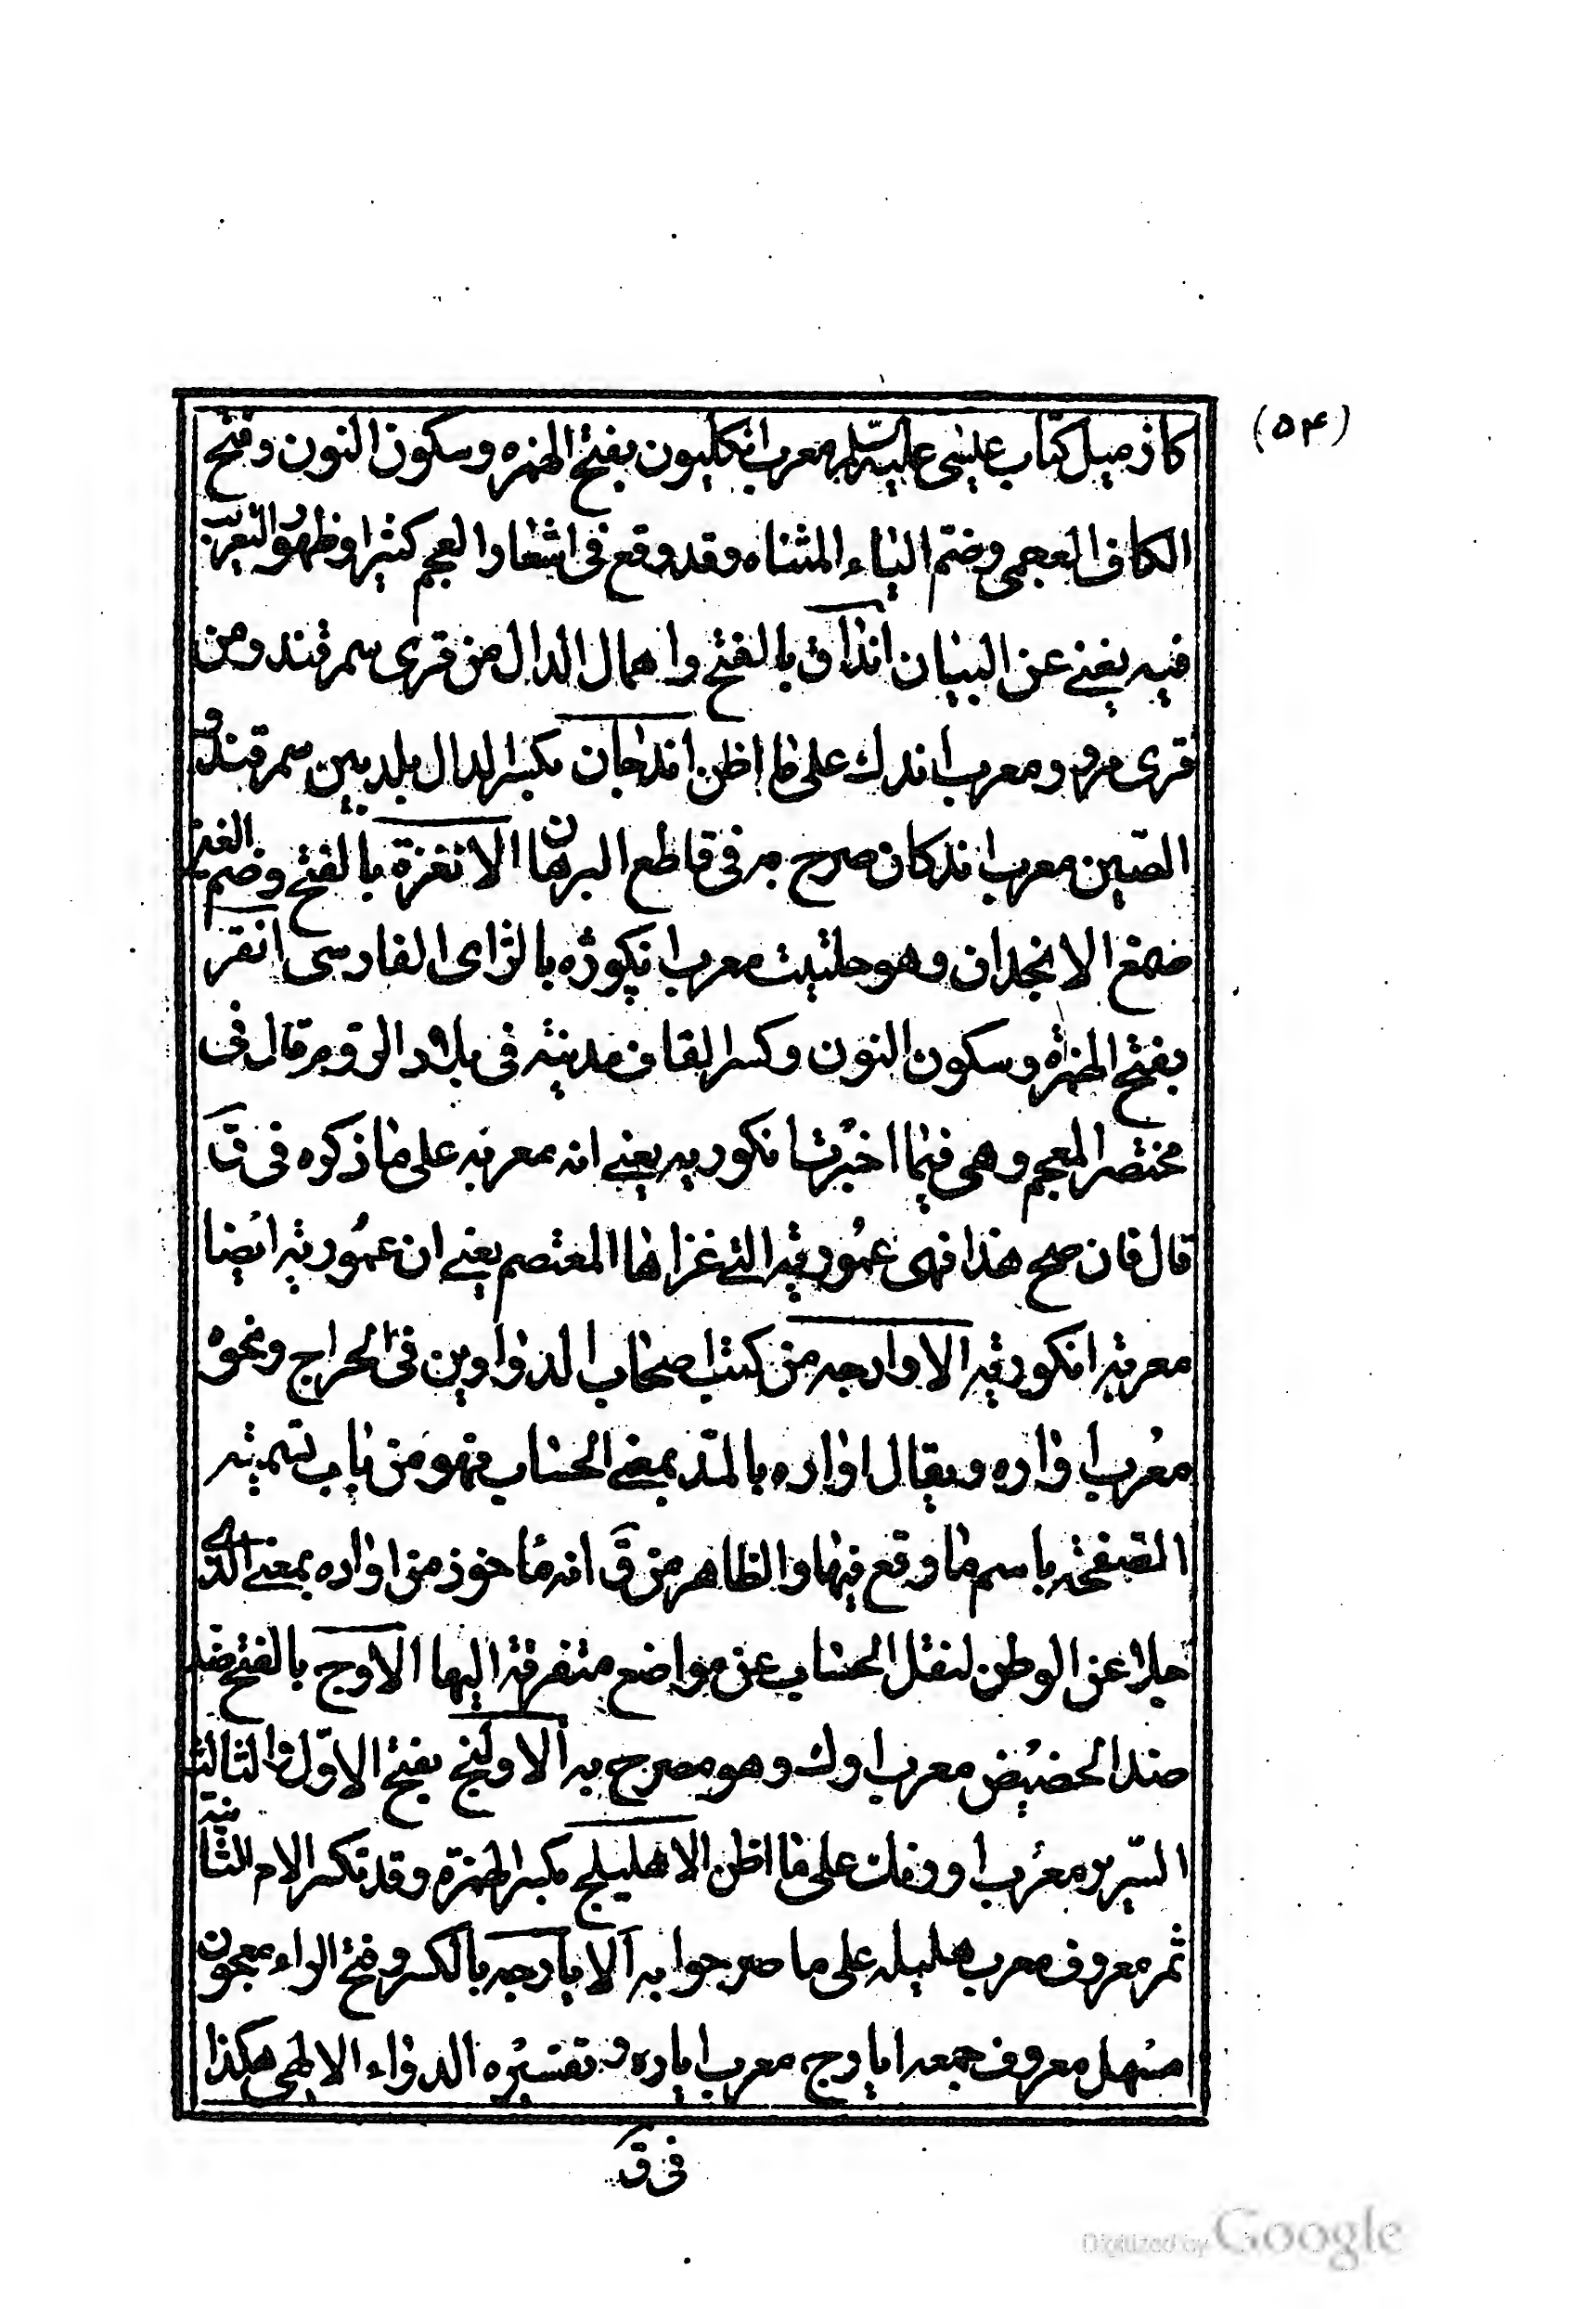 (٥۴)
كازميل كتاب عيسى عليه السلم معرب انكليون بفتح الهمزه وسكون النون وفتح
الكاف العجمى وضم الياء المثناه وقد وقع فى اشعار العجم كثيرا وظهور التعريب
فيه يغنى عن البيان انداق بالفتح واهمال الدال من قرى سمرقند ومن
قرى مرو ومعرب اندك على ما اظن اندجان بكسر الدال بلد بين سمرقند و
الصين معرب اندكان صرح به فى قاطع البرهان الانغزة بالفتح وضم الغين
صمغ الانجدان وهو حلتيت معرب انكوژه بالزاى الفارسى انقر
بفتح الهمزة وسكون النون وكسر القاف مدينة فى بلاد الروم قال فى
مختصر المعجم وهى فيما اخبرت انكوريه يعنى انه معربه على ما ذكره فى ق
قال فان صح هذا فهى عمورية التى غزاها المعتصم يعنى ان عمورية ايضا
معربة انكورية الاوارجه من كتب اصحاب الدواوين فى الخراج ونحوه
معرب اواره ويقال اواره بالمد بمعنى الحساب فهو من باب تسمية
الصفحة باسم ما وقع فيها والظاهر من ق انه ماخوذ من اواره بمعنى الذى
جلا عن الوطن لنقل الحساب عن مواضع متفرقة اليها الاوج بالفتح ضد
ضد الحضيض معرب اوك وهو مصرح به الاولنج بفتح الاول والثالث
السرير معرب اورنك على ما اظن الاهليلج بكسر الهمزة وقد تكسر الام الثانية
ثمر معروف معرب هليله على ما صرحوا به الايارجه بالكسر وفتح الراء معجون
مسهل معروف جمعه ايارج معرب اياره وتفسيره الدواء الالهى هكذا
فى ق
Digitized by Google